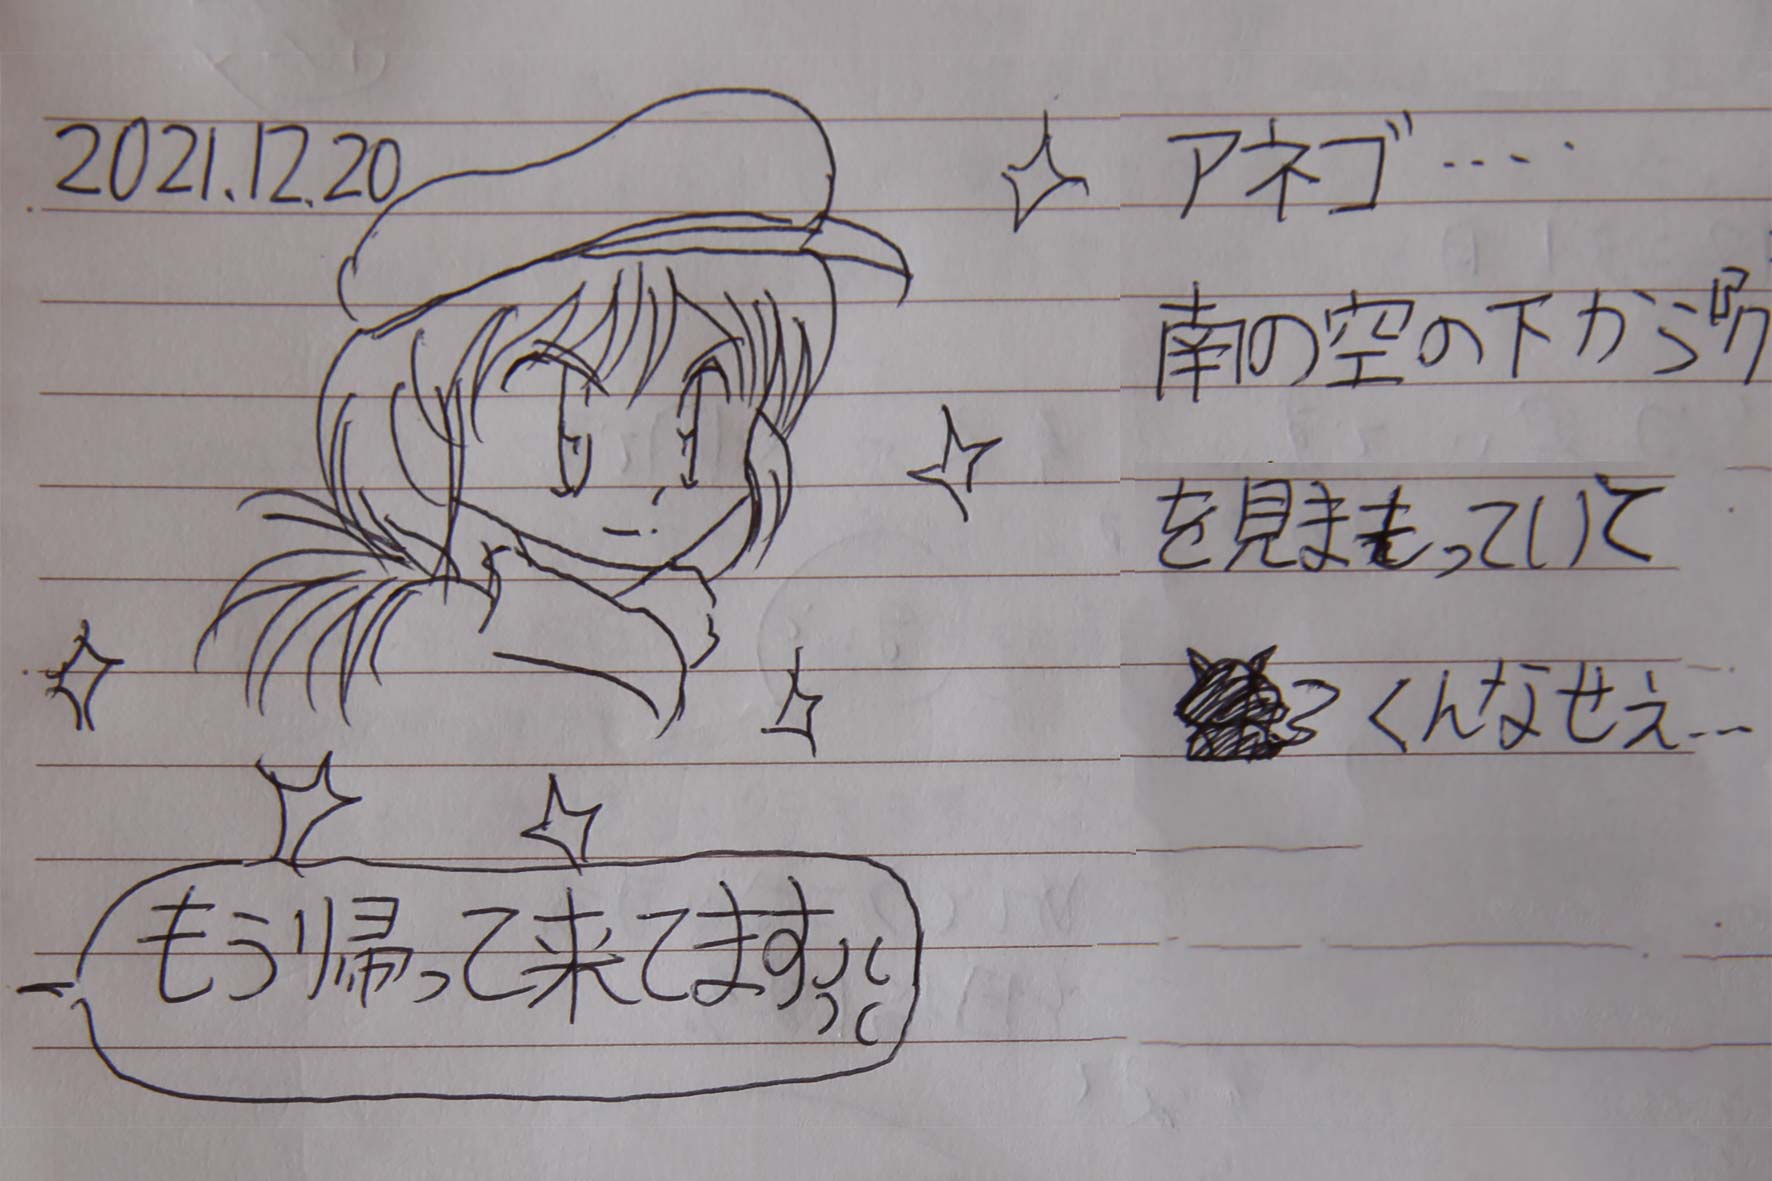 2021.12.20
アネゴ‥‥
南の空の下から
を見まもっていて
くんなせえ…
もう帰って来てます